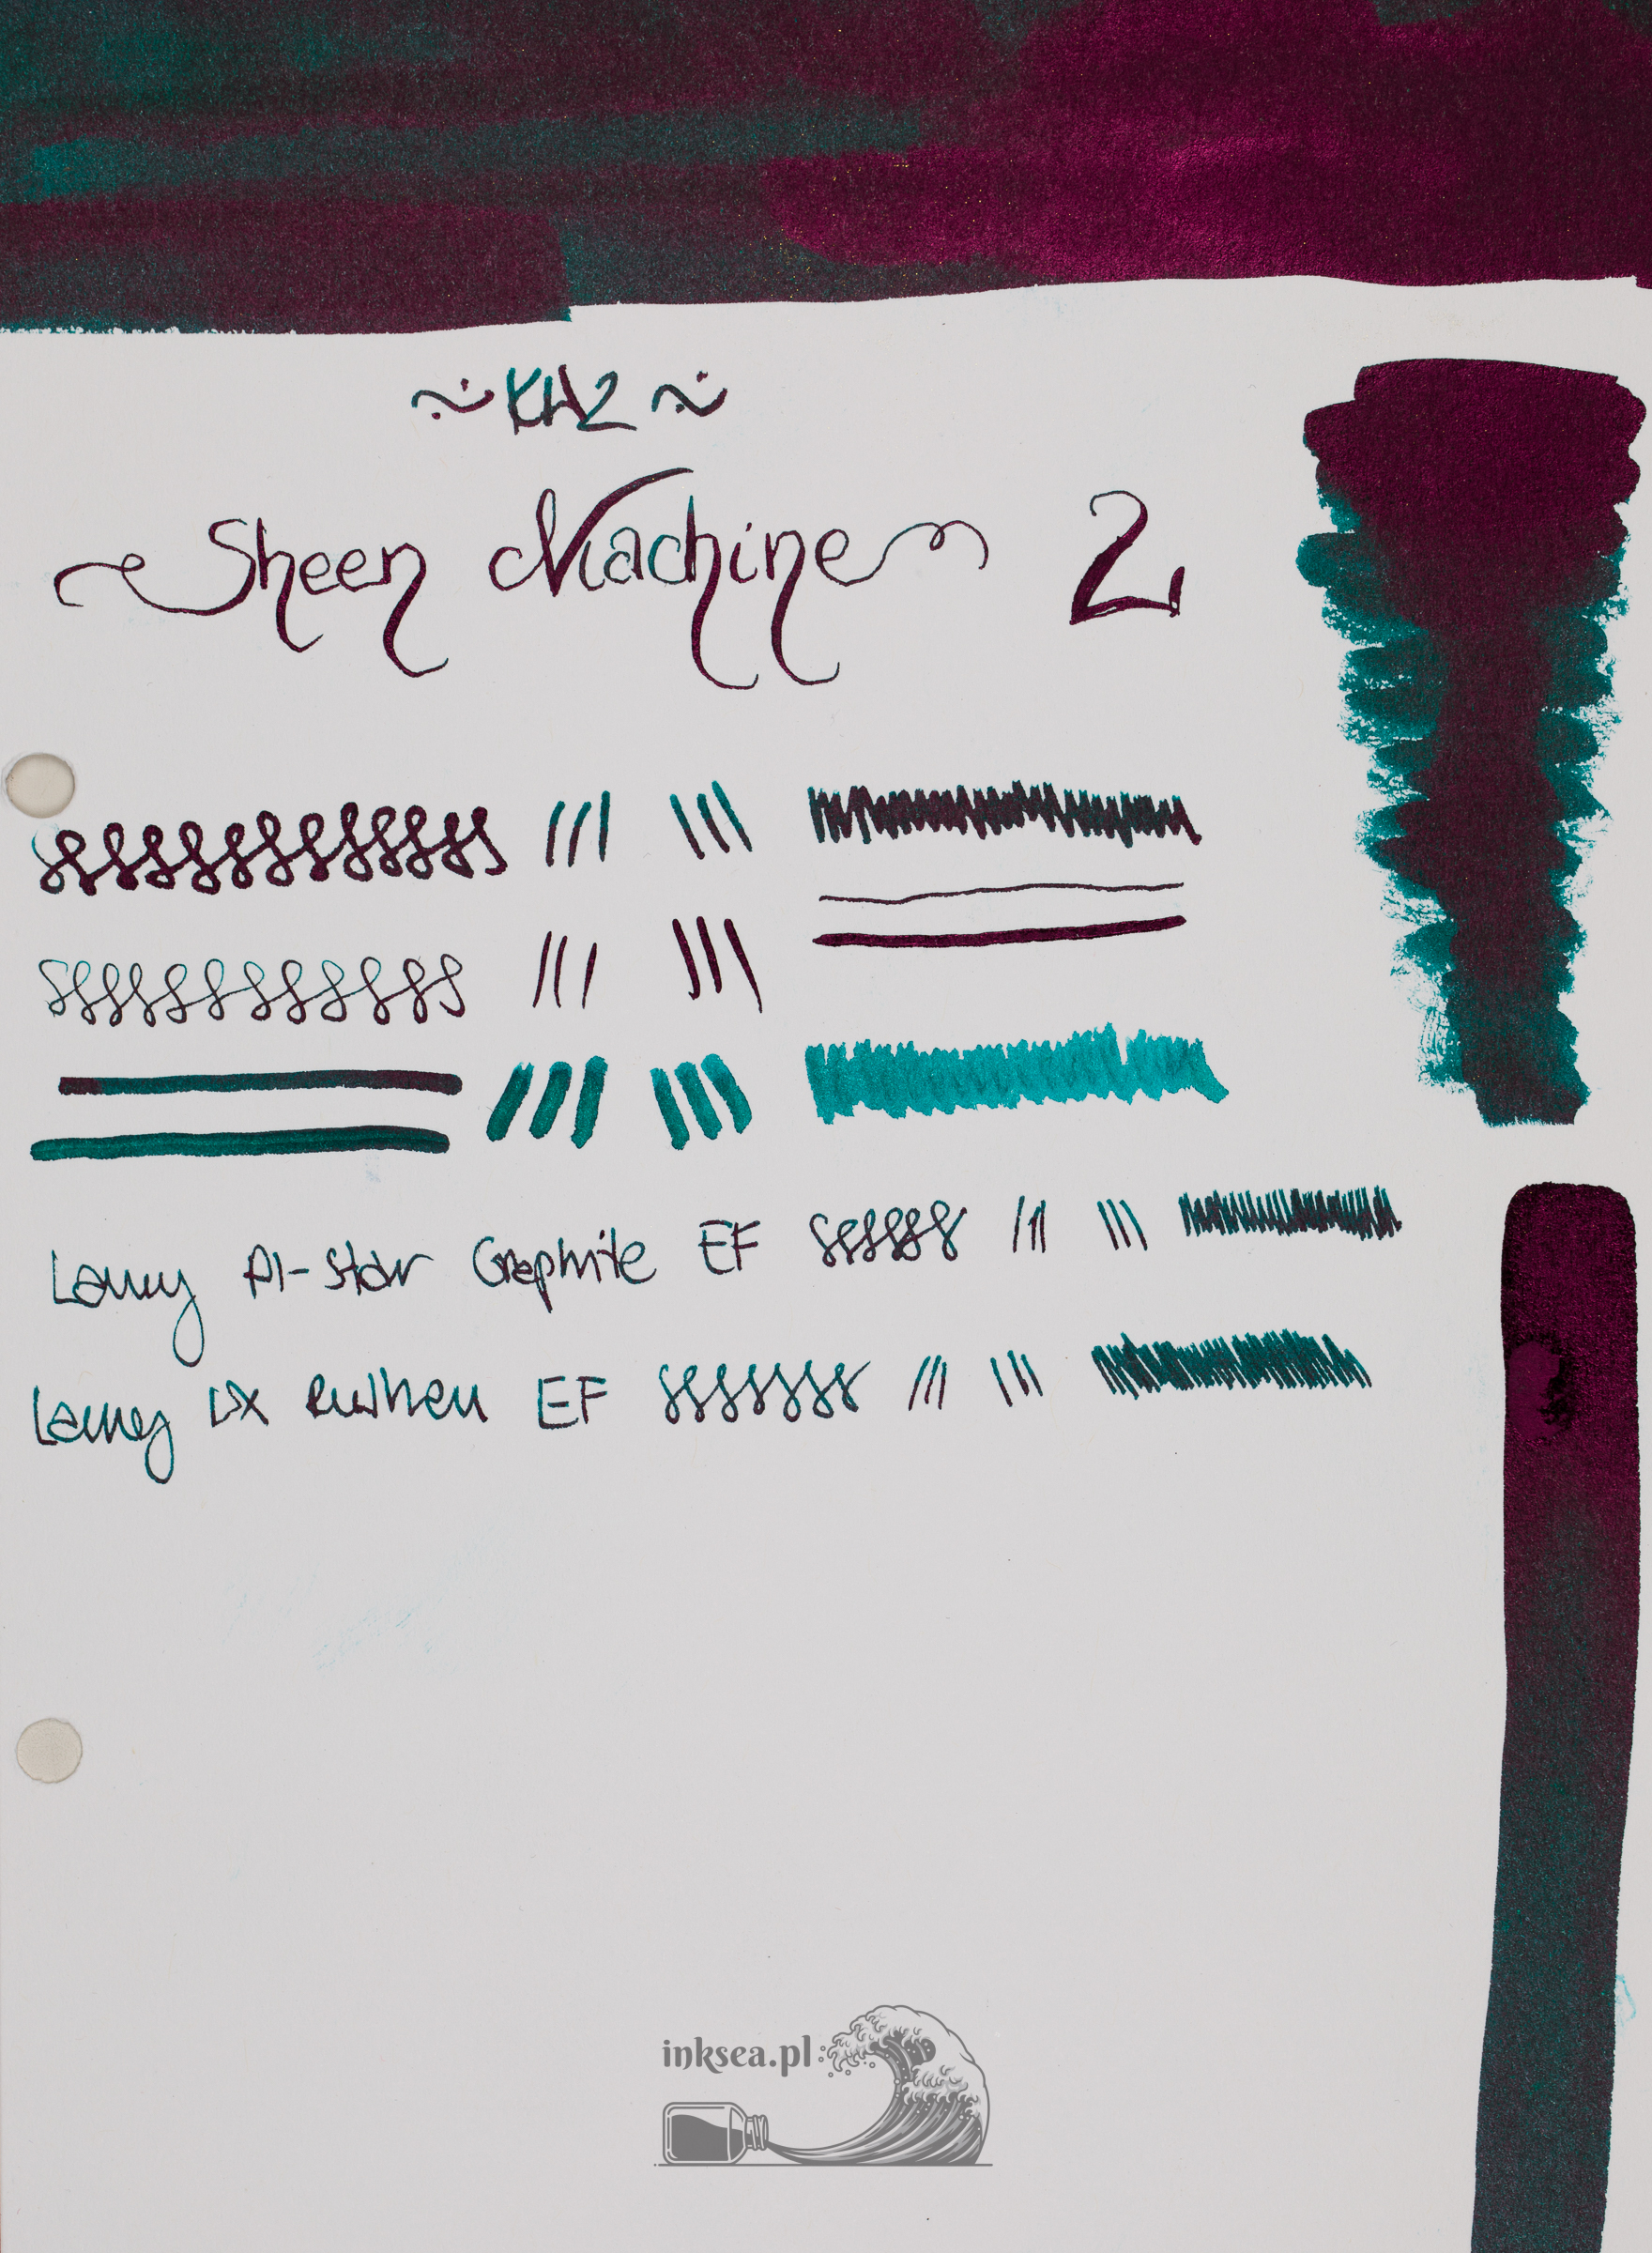 ~ KWZ ~
Sheen Machine 2
Lamy Al-Star Graphite EF
Lamy LX Ruthen EF
inksea.pl